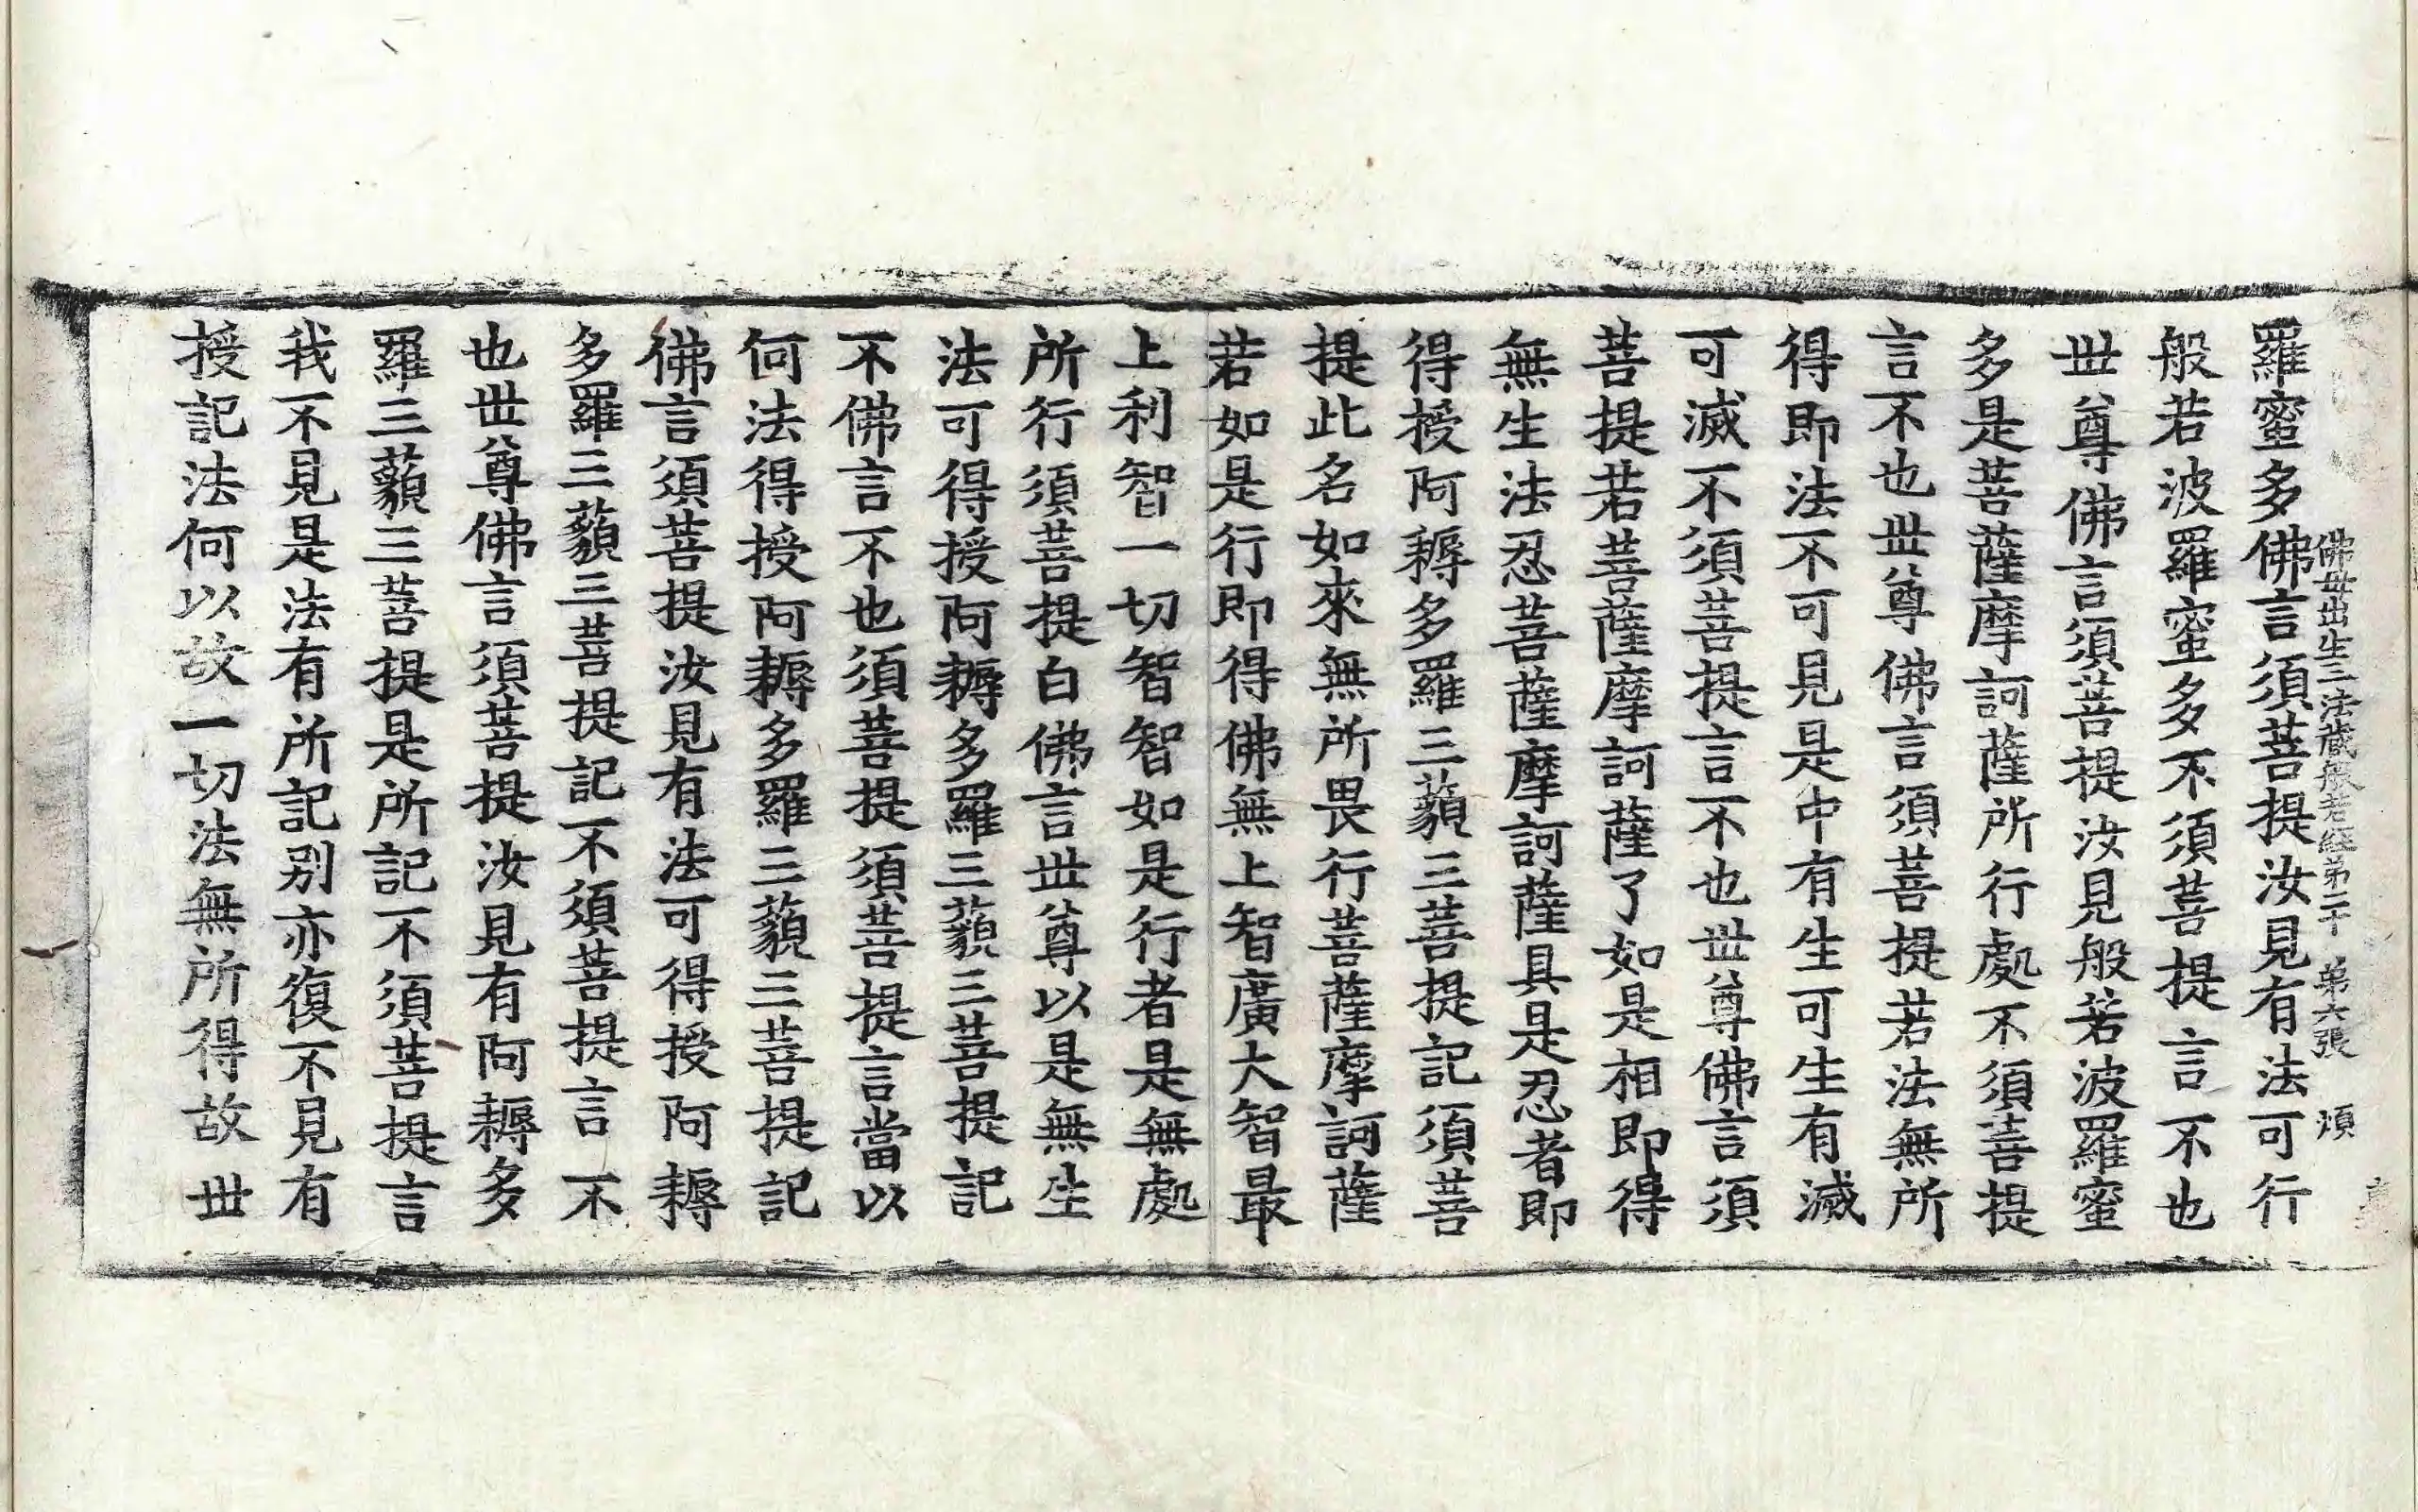 佛母出生三法藏般若經第二十 第六張 須
羅蜜多佛言須菩提汝見有法可行
般若波羅蜜多不須菩提言不也
世尊佛言須菩提汝見般若波羅蜜
多是菩薩摩訶薩所行處不須菩提
言不也世尊佛言須菩提若法無所
得即法不可見是中有生可生有滅
可滅不須菩提言不也世尊佛言須
菩提若菩薩摩訶薩了如是相即得
無生法忍菩薩摩訶薩具是忍者即
得授阿耨多羅三藐三菩提記須菩
提此名如來無所畏行菩薩摩訶薩
若如是行即得佛無上智廣大智最
上利智一切智智如是行者是無處
所行須菩提白佛言世尊以是無生
法可得授阿耨多羅三藐三菩提記
不佛言不也須菩提須菩提言當以
何法得授阿耨多羅三藐三菩提記
佛言須菩提汝見有法可得授阿耨
多羅三藐三菩提記不須菩提言不
也世尊佛言須菩提汝見有阿耨多
羅三藐三菩提是所記不須菩提言
我不見是法有所記别亦復不見有
授記法何以故一切法無所得故世